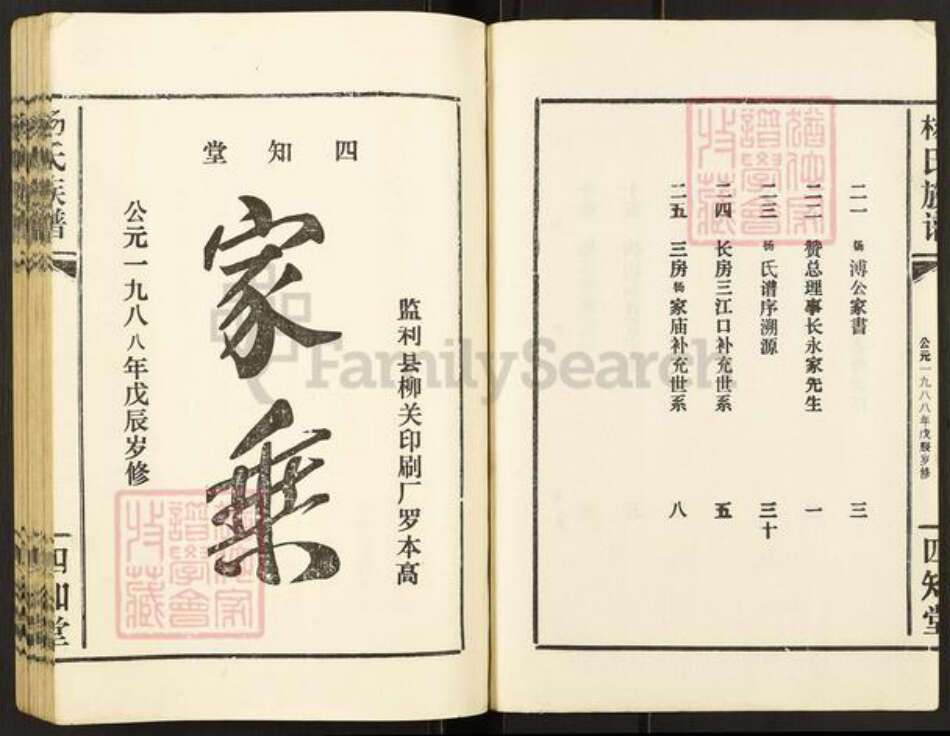 杨氏族谱
公元一九八八年戊辰岁修
四知堂
二一 杨溥公家書 三
二二 赞总理事长永家先生 一
二三 杨氏谱序溯源 三十
二四 长房三江口补充世系 五
二五 三房杨家庙补充世系 八
FamilySearch
四知堂
监利县柳关印刷厂罗本高
家乘
公元一九八八年戊辰岁修
杨氏族谱
四知堂